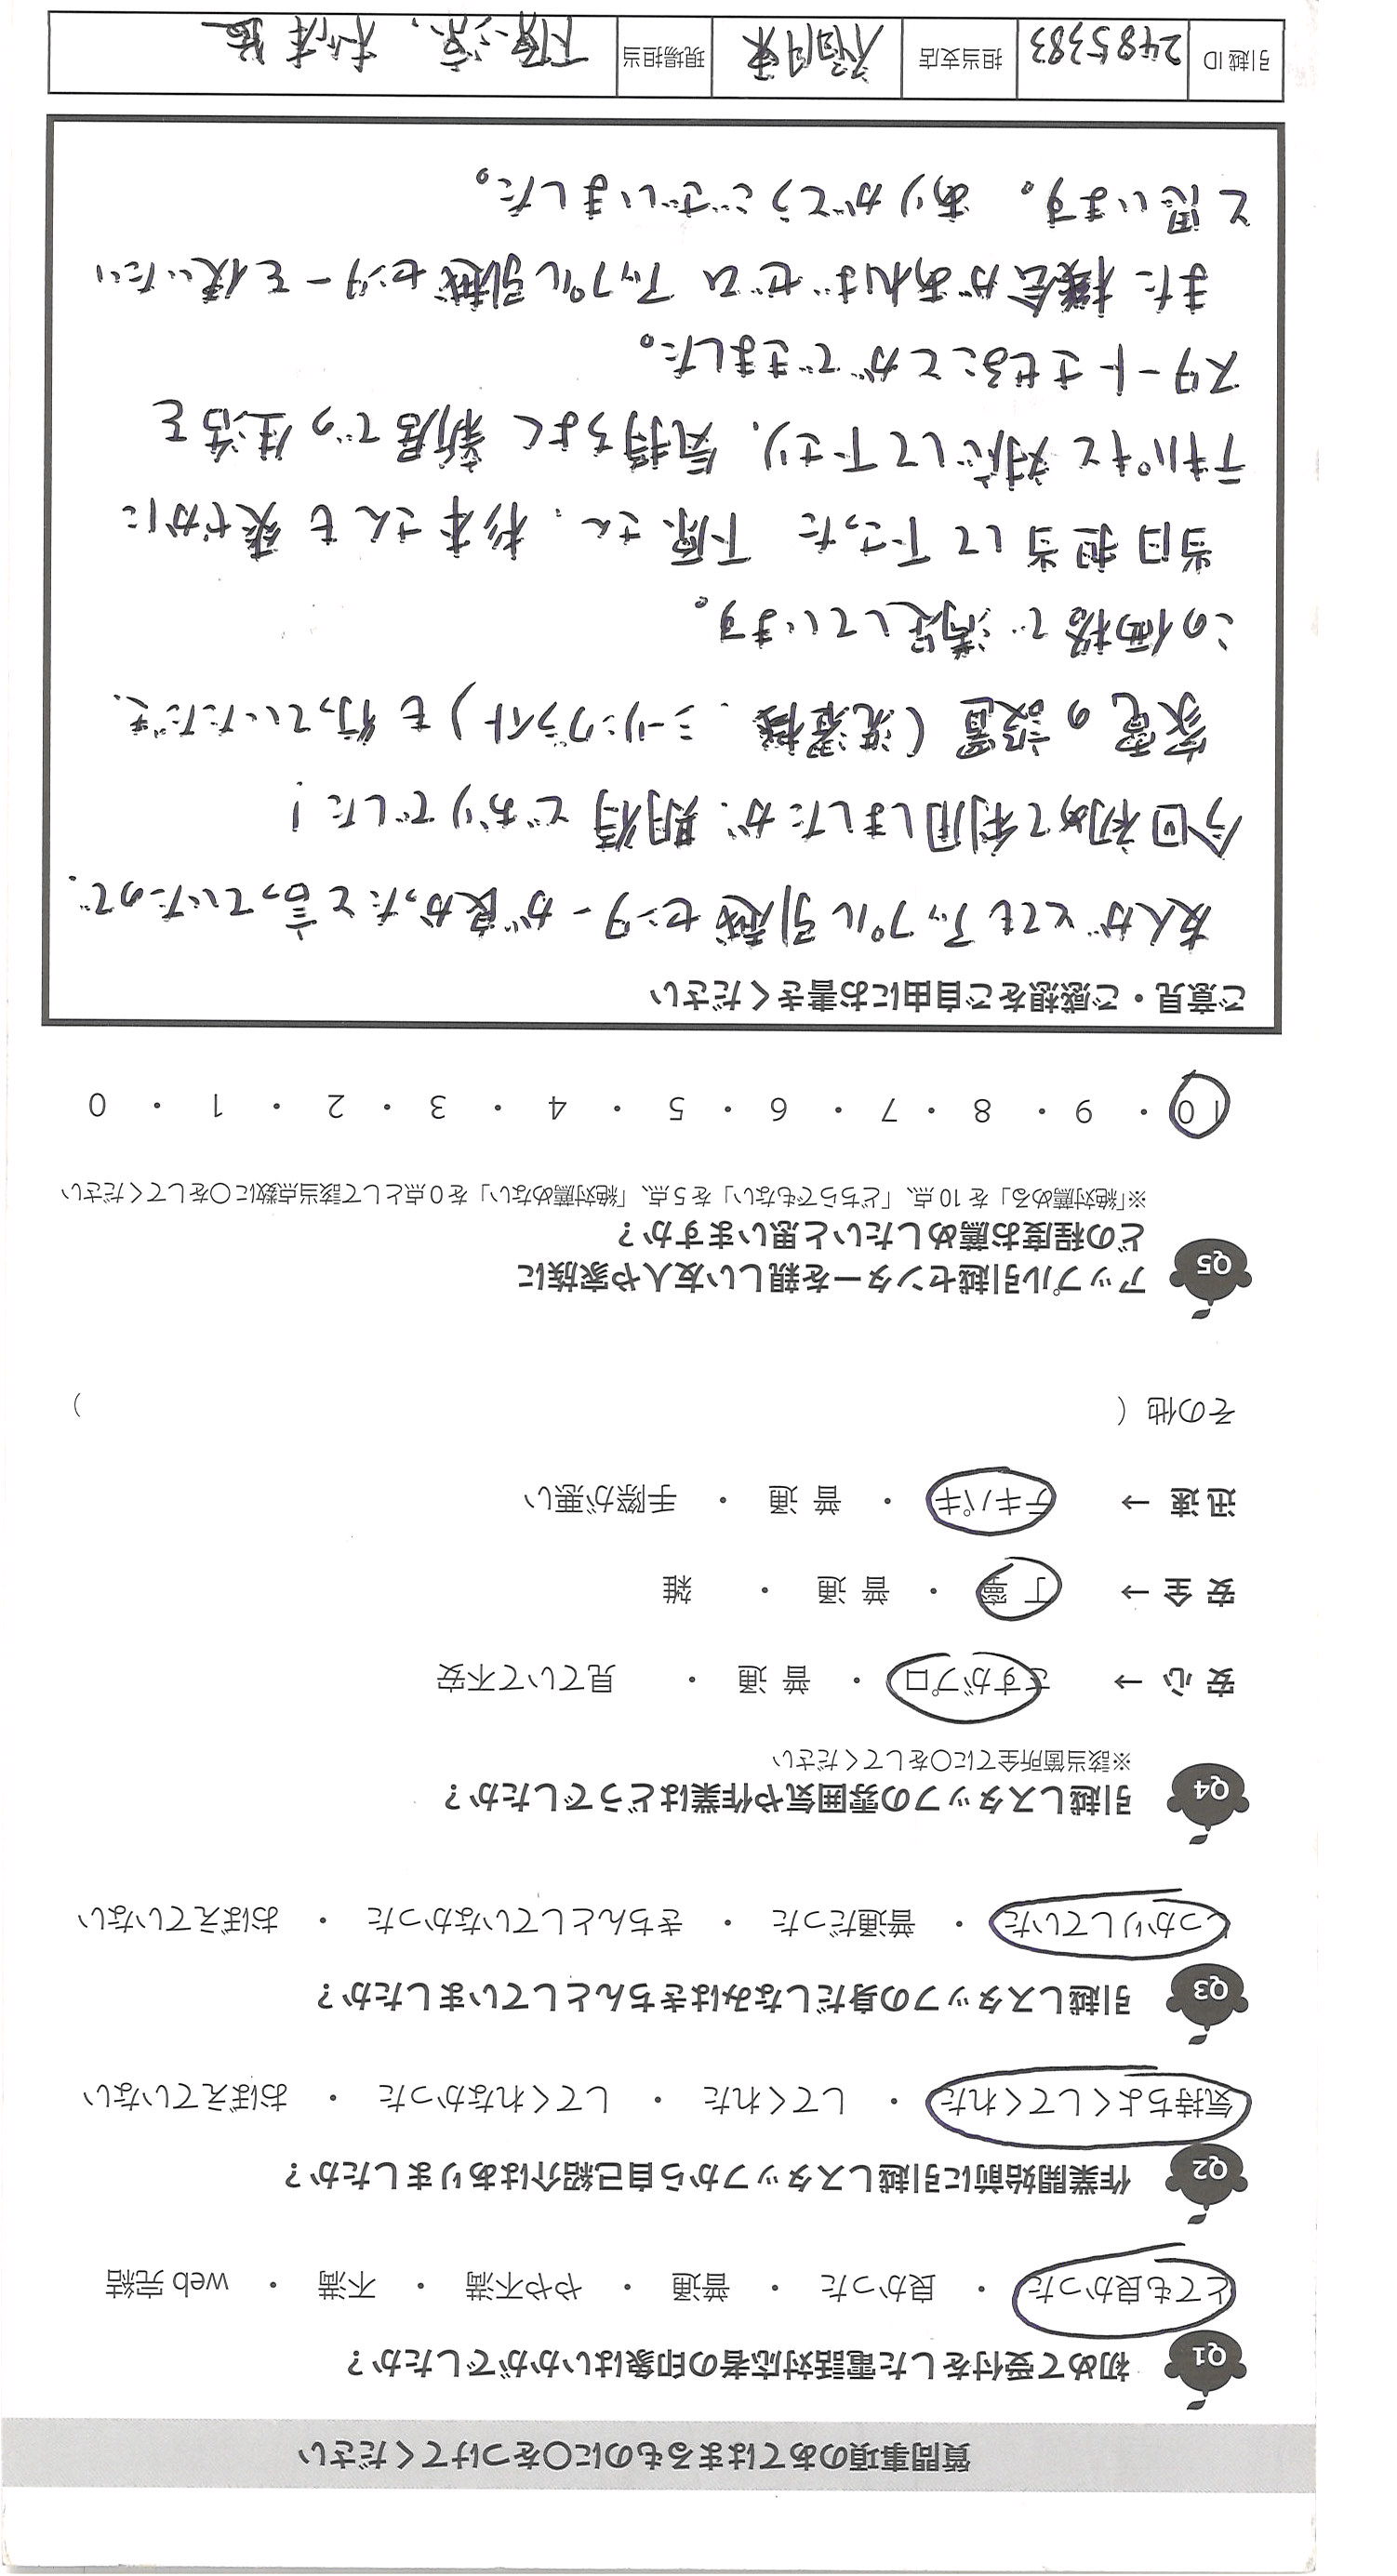 質問事項のあてはまるものに〇をつけてください
Q1 初めて受付をした電話対応者の印象はいかがでしたか？
とても良かった ・ 良かった ・ 普通 ・ やや不満 ・ 不満 ・ web 完結
Q2 作業開始前に引越しスタッフから自己紹介はありましたか？
気持ちよくしてくれた ・ してくれた ・ してくれなかった ・ おぼえていない
Q3 引越しスタッフの身だしなみはきちんとしていましたか？
しっかりしていた ・ 普通だった ・ きちんとしていなかった ・ おぼえていない
Q4 引越しスタッフの雰囲気や作業はどうでしたか？
※該当箇所全てに〇をしてください
安 心 → さすがプロ ・ 普 通 ・ 見ていて不安
安 全 → 丁 寧 ・ 普 通 ・ 雑
迅 速 → テキパキ ・ 普 通 ・ 手際が悪い
その他（ ）
Q5 アップル引越センターを親しい友人や家族に
どの程度お薦めしたいと思いますか？
※「絶対薦める」を 10 点、「どちらでもない」を 5 点、「絶対薦めない」を 0 点として該当点数に〇をしてください
10 ・ 9 ・ 8 ・ 7 ・ 6 ・ 5 ・ 4 ・ 3 ・ 2 ・ 1 ・ 0
ご意見・ご感想をご自由にお書きください
友人がとてもアップル引越センターが良かったと言っていたので、
今回初めて利用しましたが、期待どおりでした！
家電の設置（洗濯機、シーリングライト）も行っていただき、
この価格で満足しています。
当日担当して下さった 下原さん、杉本さんも爽やかに
テキパキと対応して下さり、気持ちよく新居での生活を
スタートさせることができました。
また機会があればぜひ アップル引越センターを使いたい
と思います。 ありがとうございました。
引越 ID 2485383 担当支店 福岡東 現場担当 下原 涼、杉本